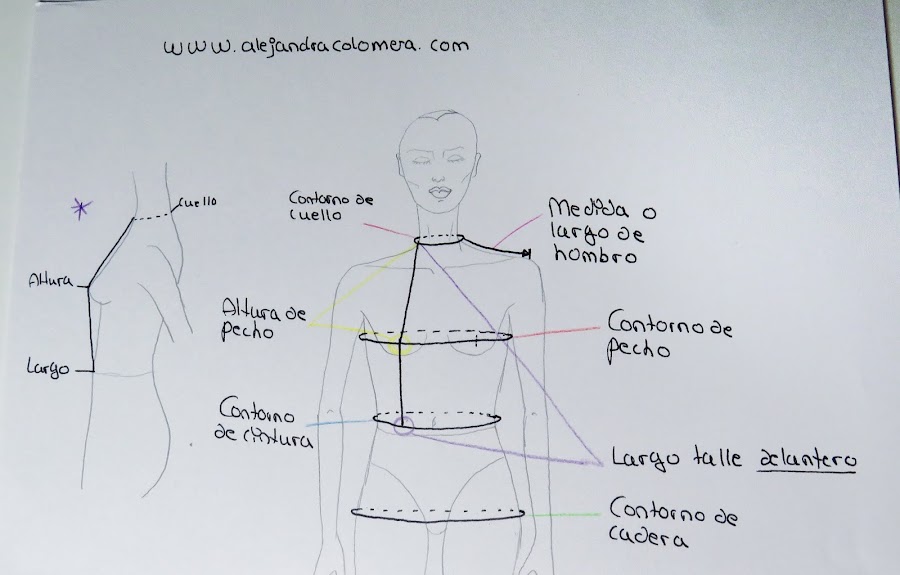 www.alejandracolomera.com
*
Cuello
Altura
Largo
Contorno de
cuello
Medida o
largo de
hombro
Altura de
pecho
Contorno de
pecho
Contorno
de cintura
Largo talle delantero
Contorno de
cadera